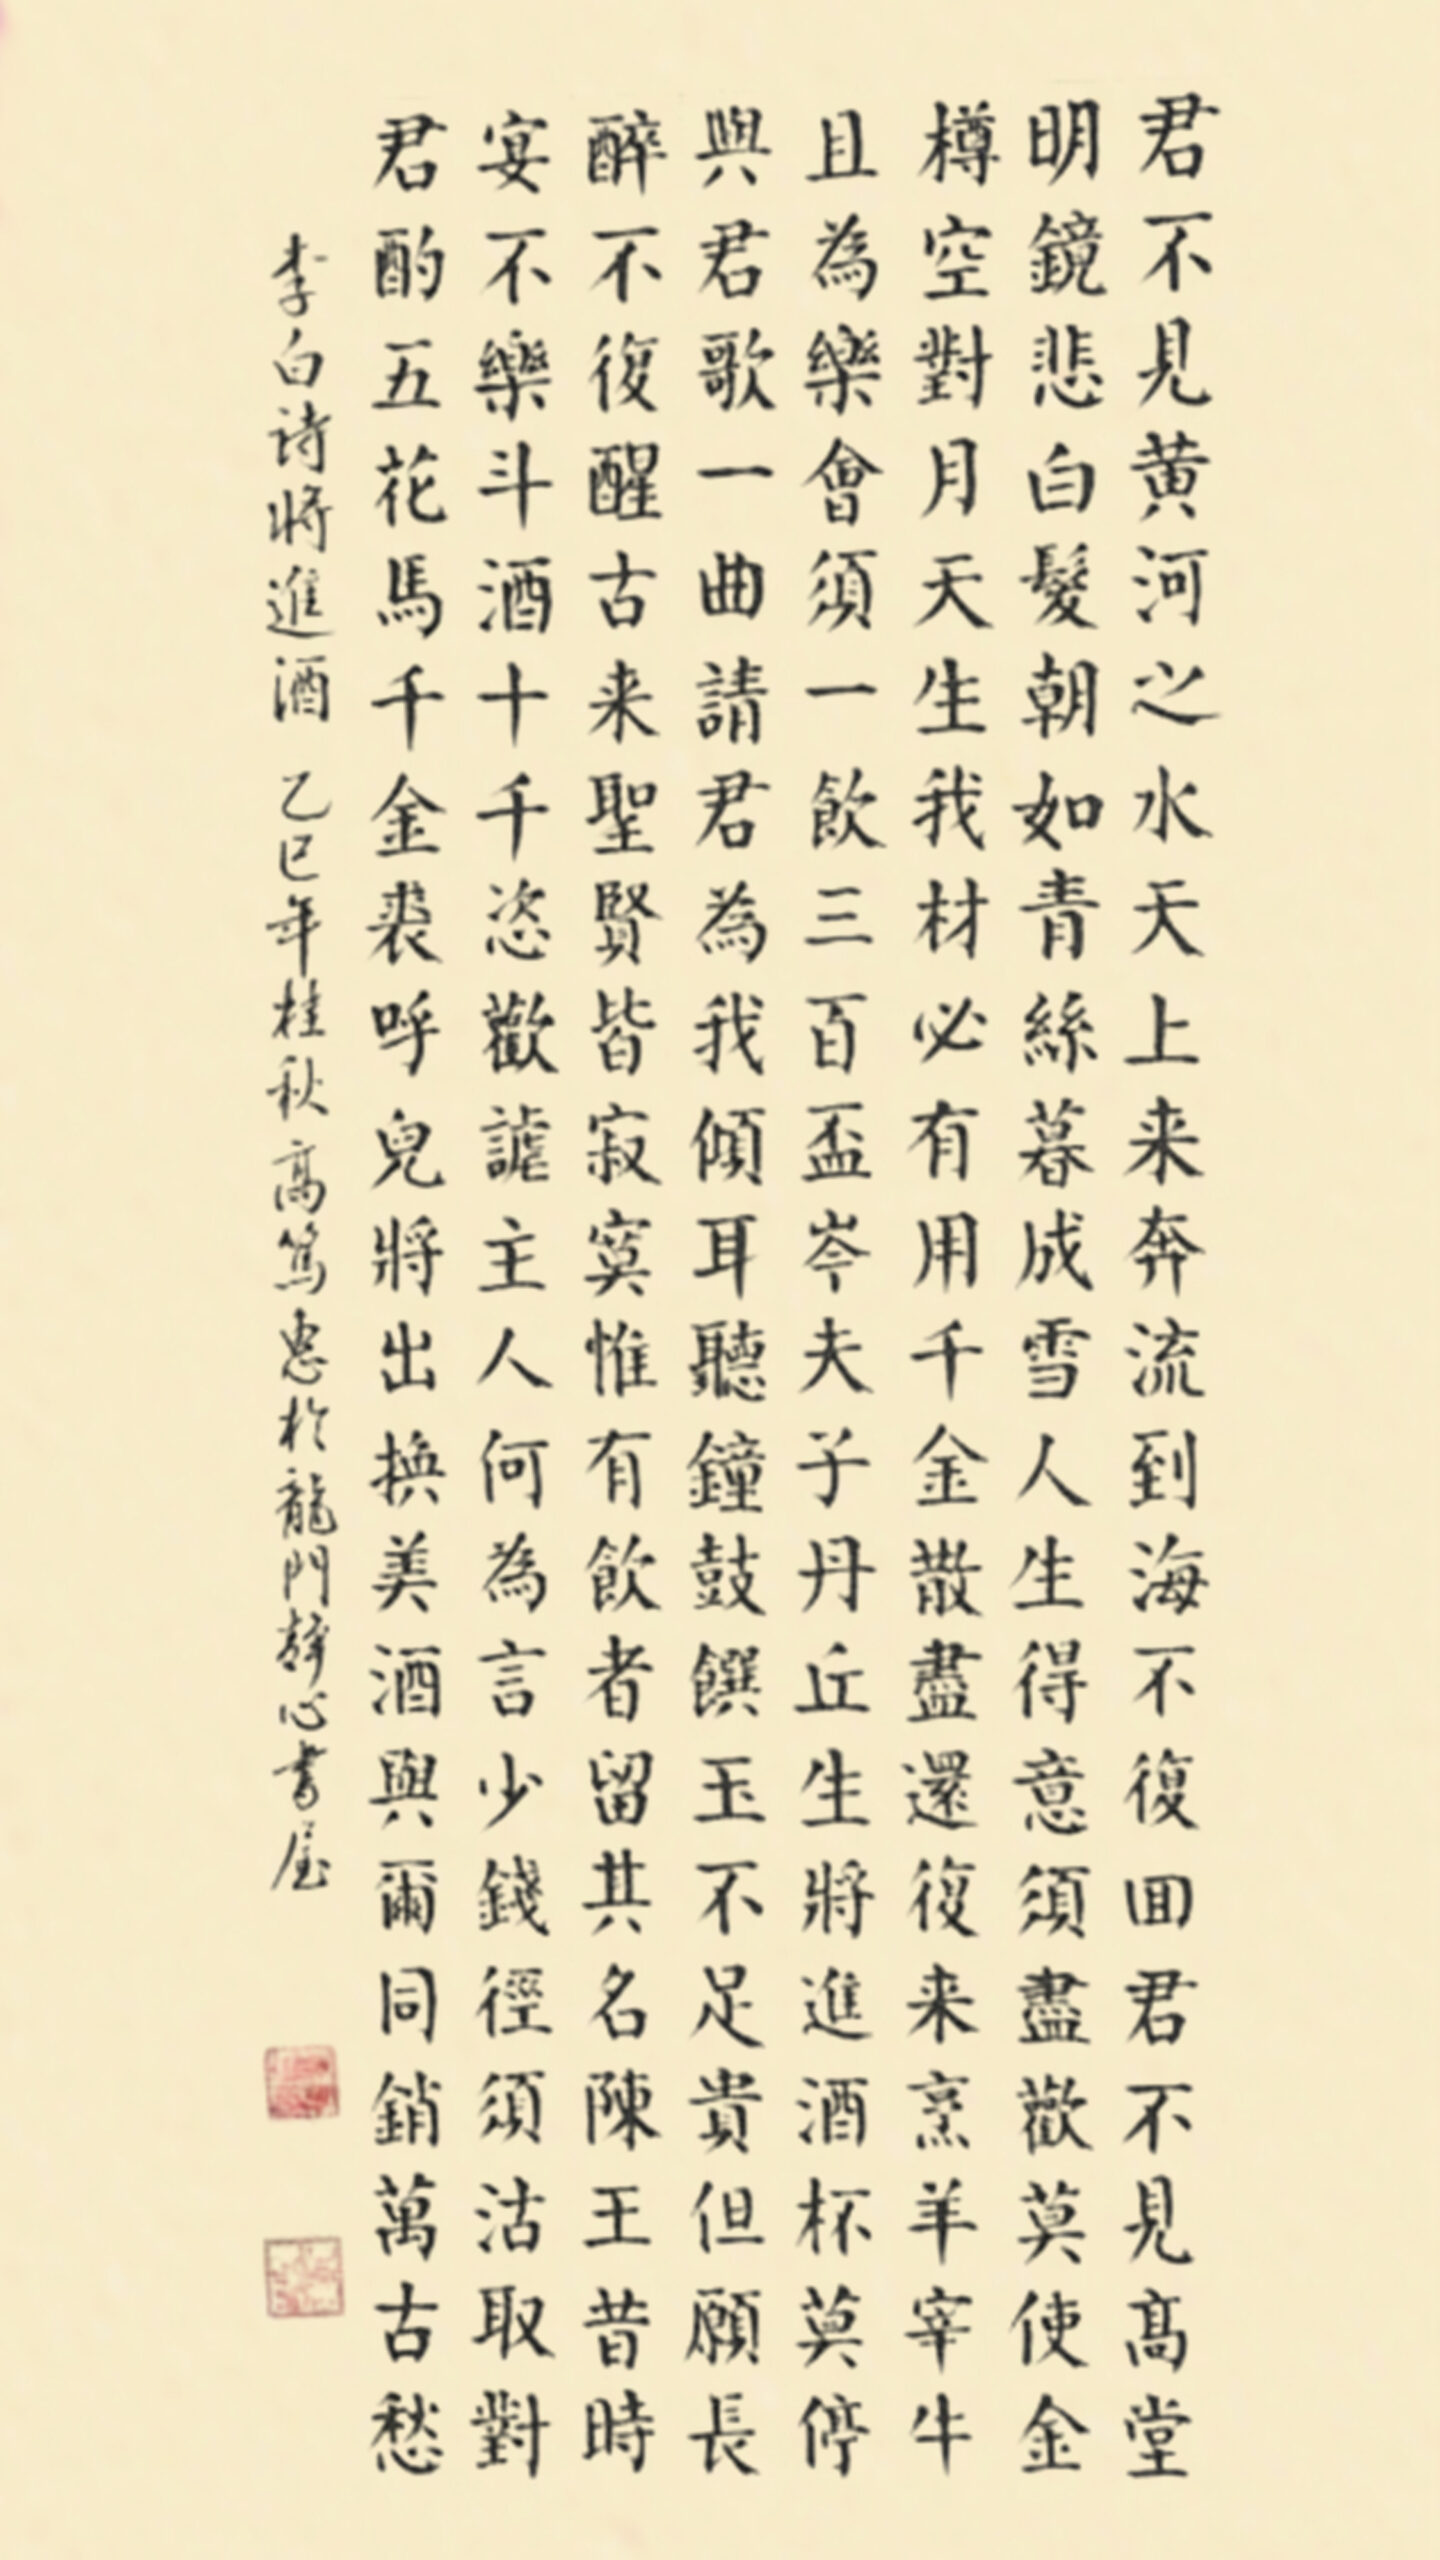 君不見黄河之水天上来奔流到海不復回君不見高堂
明鏡悲白髮朝如青絲暮成雪人生得意須盡歡莫使金
樽空對月天生我材必有用千金散盡還復来烹羊宰牛
且為樂會須一飲三百盃岑夫子丹丘生將進酒杯莫停
與君歌一曲請君為我傾耳聽鐘鼓饌玉不足貴但願長
醉不復醒古来聖賢皆寂寞惟有飲者留其名陳王昔時
宴不樂斗酒十千恣歡謔主人何為言少錢徑須沽取對
君酌五花馬千金裘呼兒將出換美酒與爾同銷萬古愁
李白诗將進酒 乙巳年桂秋高篤忠於龍門静心書屋